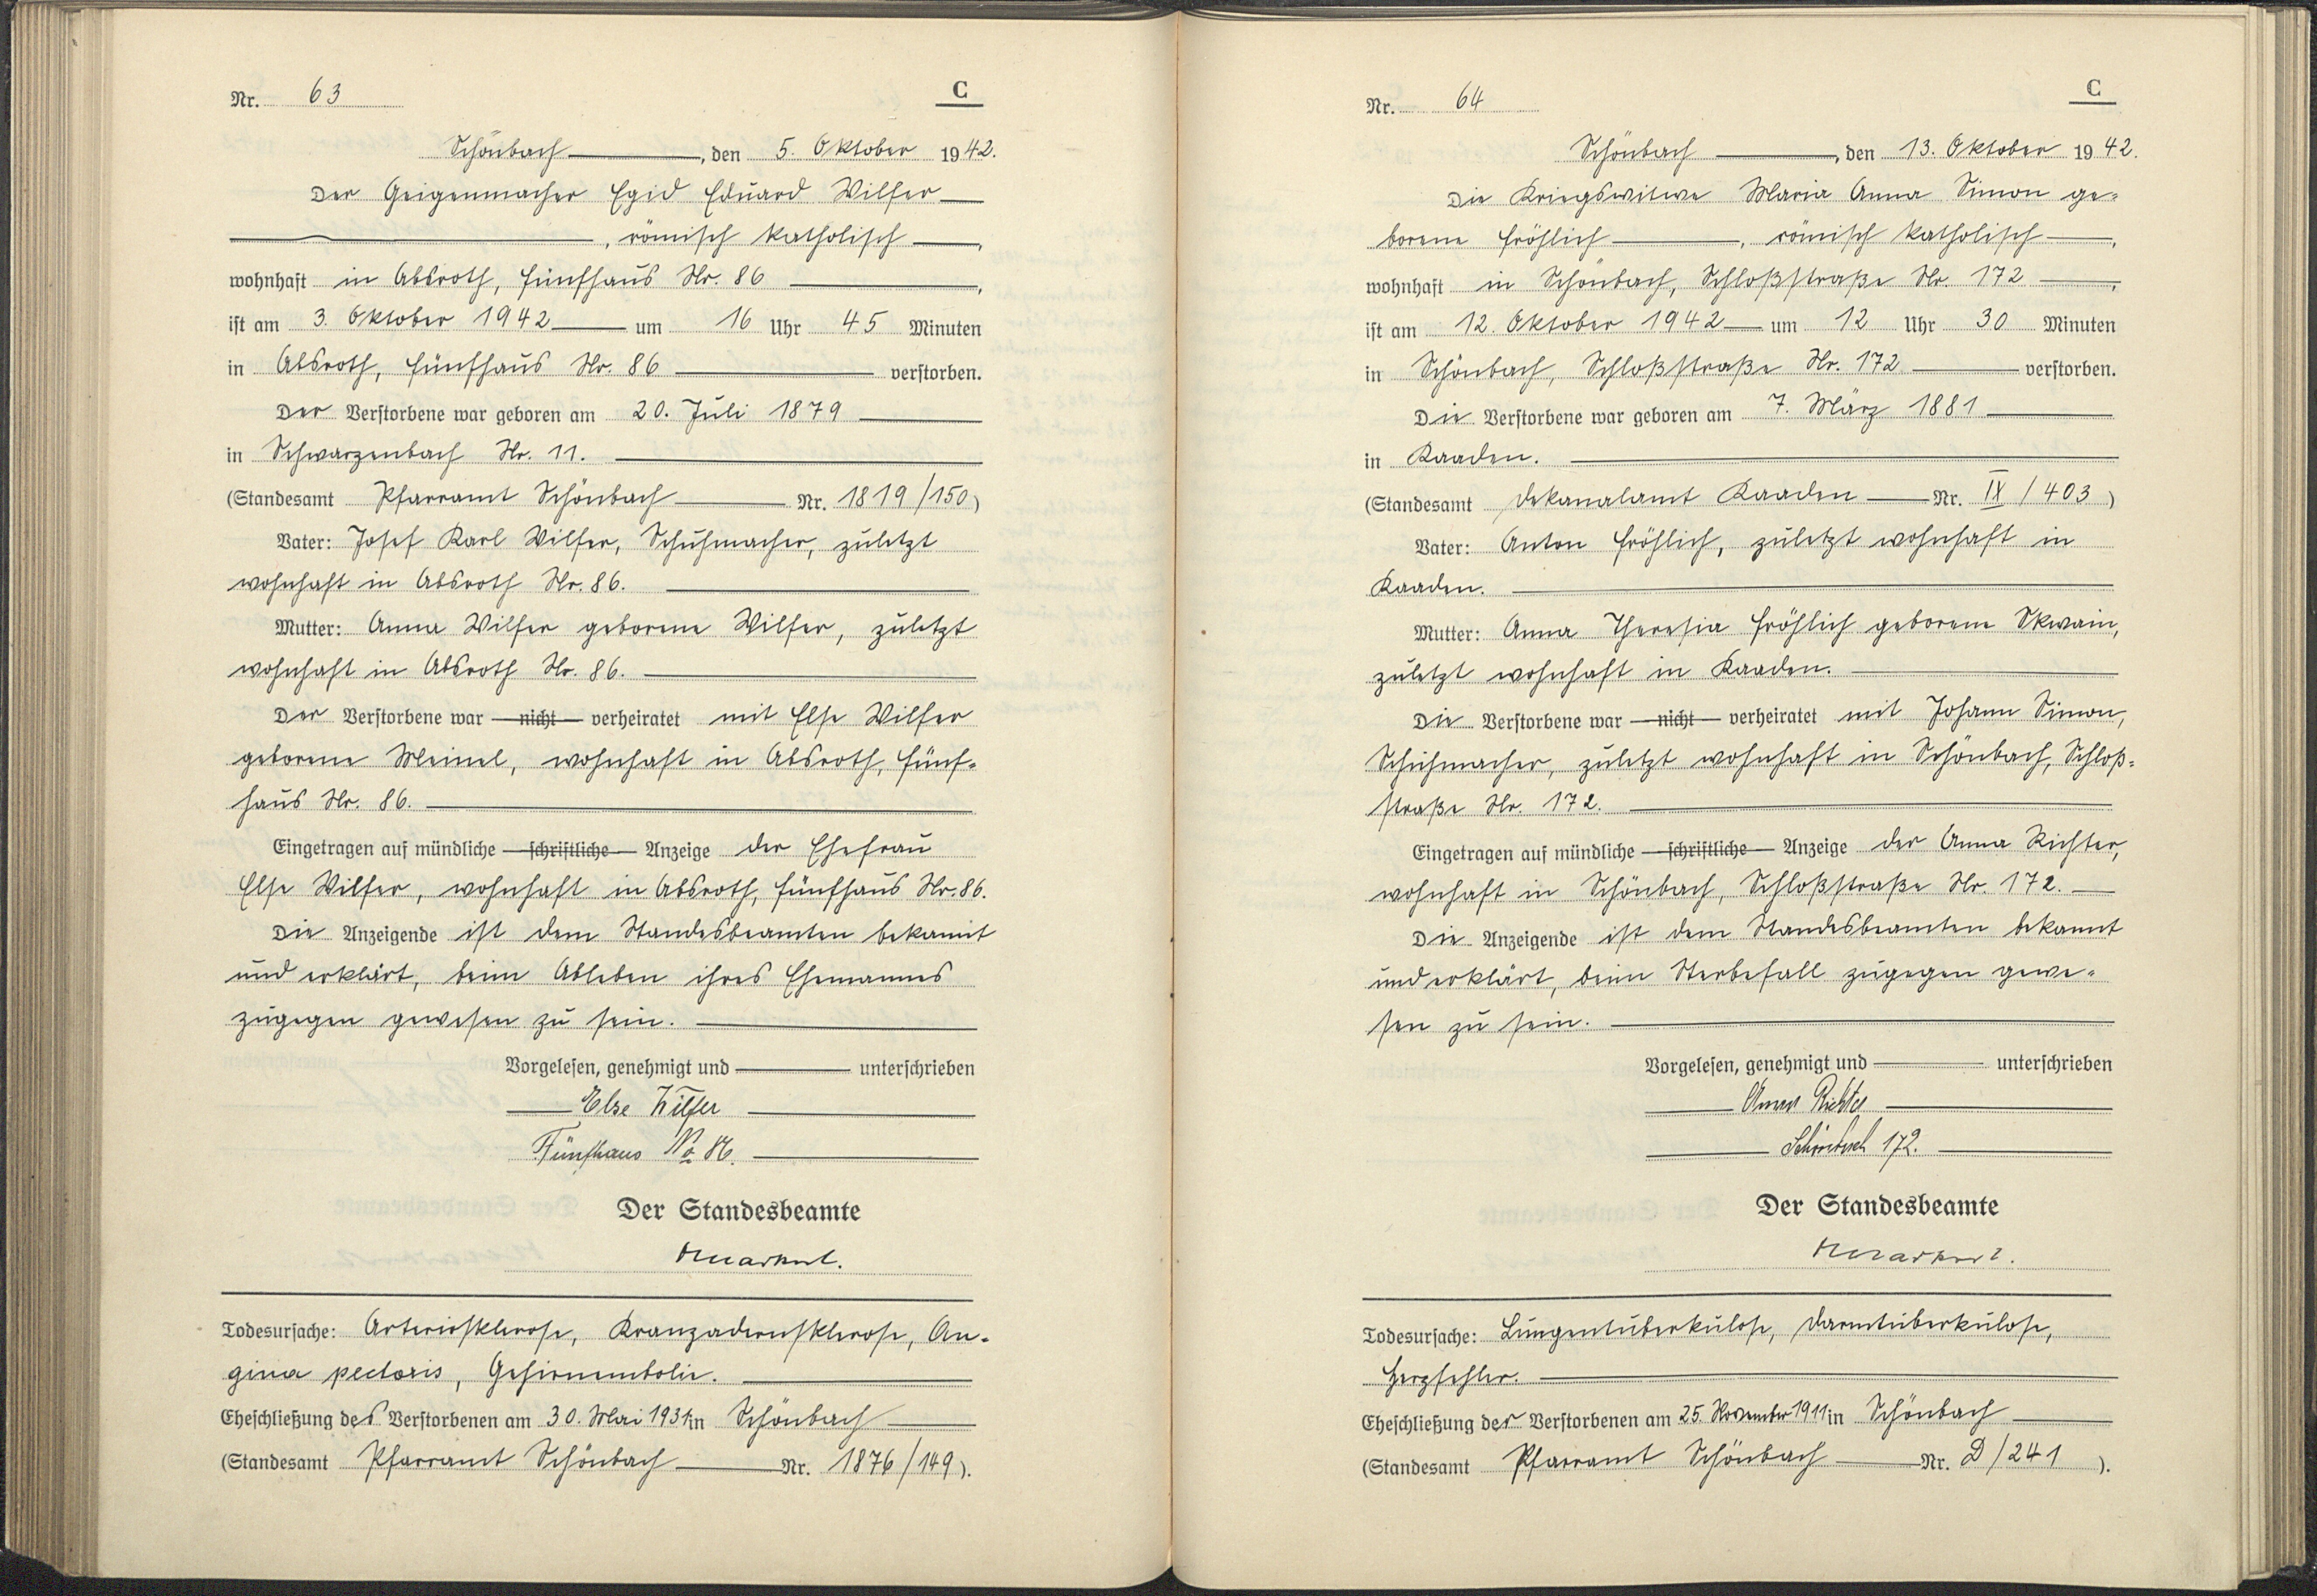 Nr. 63
C
Schönbach, den 5. Oktober 1942.
Der Geigenmacher Egid Eduard Wilfer
, römisch katholisch,
wohnhaft in Absroth, Fünfhaus Nr. 86,
ist am 3. Oktober 1942 um 16 Uhr 45 Minuten
in Absroth, Fünfhaus Nr. 86 verstorben.
Der Verstorbene war geboren am 20. Juli 1879
in Schwarzenbach Nr. 11.
(Standesamt Pfarramt Schönbach Nr. 1819/150)
Vater: Josef Karl Wilfer, Schuhmacher, zuletzt
wohnhaft in Absroth Nr. 86.
Mutter: Anna Wilfer geborene Wilfer, zuletzt
wohnhaft in Absroth Nr. 86.
Der Verstorbene war nicht verheiratet mit Else Wilfer
geborene Meinel, wohnhaft in Absroth, Fünf-
haus Nr. 86.
Eingetragen auf mündliche schriftliche Anzeige der Ehefrau
Else Wilfer, wohnhaft in Absroth, Fünfhaus Nr. 86.
Die Anzeigende ist dem Standesbeamten bekannt
und erklärt, beim Ableben ihres Ehemannes
zugegen gewesen zu sein.
Vorgelesen, genehmigt und unterschrieben
Else Wilfer
Fünfhaus No 86.
Der Standesbeamte
Todesursache: Arteriosklerose, Kranzadernsklerose, An-
gina pectoris, Gehirnembolie.
Eheschließung des Verstorbenen am 30. Mai 1931 in Schönbach
(Standesamt Pfarramt Schönbach Nr. 1876/149).
Nr. 64
C
Schönbach, den 13. Oktober 1942.
Die Kriegswitwe Maria Anna Simon ge-
borene Fröhlich, römisch katholisch,
wohnhaft in Schönbach, Schloßstraße Nr. 172,
ist am 12. Oktober 1942 um 12 Uhr 30 Minuten
in Schönbach, Schloßstraße Nr. 172 verstorben.
Die Verstorbene war geboren am 7. März 1881
in Kaaden.
(Standesamt Dekanalamt Kaaden Nr. IX/403)
Vater: Anton Fröhlich, zuletzt wohnhaft in
Kaaden.
Mutter: Anna Theresia Fröhlich geborene Skwain,
zuletzt wohnhaft in Kaaden.
Die Verstorbene war nicht verheiratet mit Johann Simon,
Schuhmacher, zuletzt wohnhaft in Schönbach, Schloß-
straße Nr. 172.
Eingetragen auf mündliche schriftliche Anzeige der Anna Richter,
wohnhaft in Schönbach, Schloßstraße Nr. 172.
Die Anzeigende ist dem Standesbeamten bekannt
und erklärt, beim Sterbefall zugegen gewe-
sen zu sein.
Vorgelesen, genehmigt und unterschrieben
Anna Richter
Schönbach 172.
Der Standesbeamte
Todesursache: Lungentuberkulose, Darmtuberkulose,
Herzfehler.
Eheschließung der Verstorbenen am 25. November 1911 in Schönbach
(Standesamt Pfarramt Schönbach Nr. D/241).